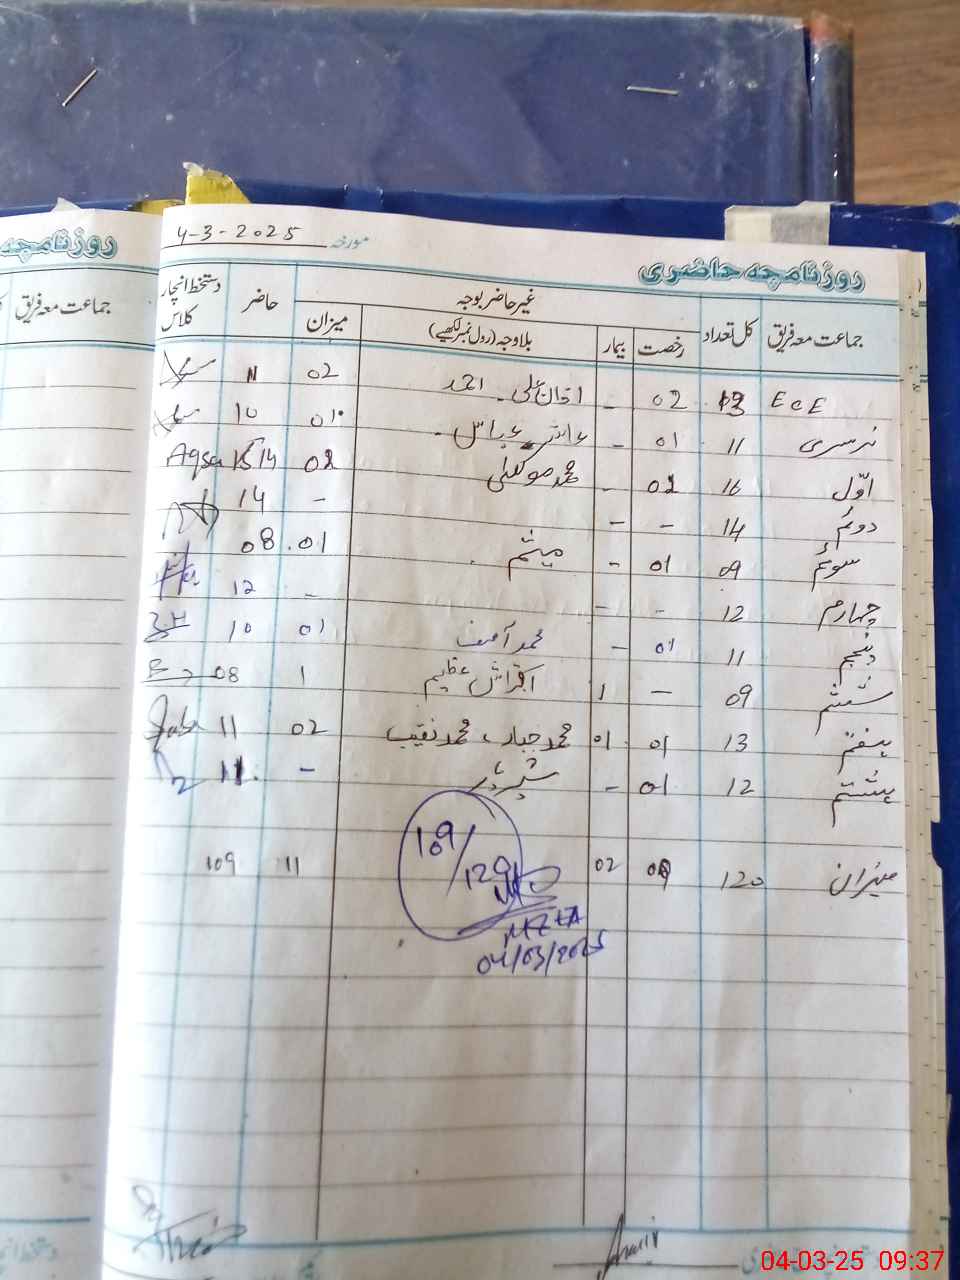 روزنامچہ
جماعت معہ فریق
مورخہ 4-3-2025
روزنامچہ حاضری
جماعت معہ فریق کل تعداد غیر حاضر بوجہ حاضر دستخط انچارج کلاس
رخصت بیمار بلاوجہ (رول نمبر لکھیے) میزان
ECE 13 02 - اذان علی احمد 02 11
نرسری 11 01 - عباس 01 10
اوّل 16 02 - محمد 02 14 Aqsa
دوئم 14 - - - 14
سوئم 09 01 - میثم 01 08
چہارم 12 - - - 12
پنجم 11 01 - محمد آصف 01 10
ششم 09 - 1 عظیم 1 08
ہفتم 13 01 01 محمد جبار، محمد نقیب 02 11
ہشتم 12 01 - - 11
میزان 120 09 02 11 109
109/120
MEEA
04/03/2025
04-03-25 09:37